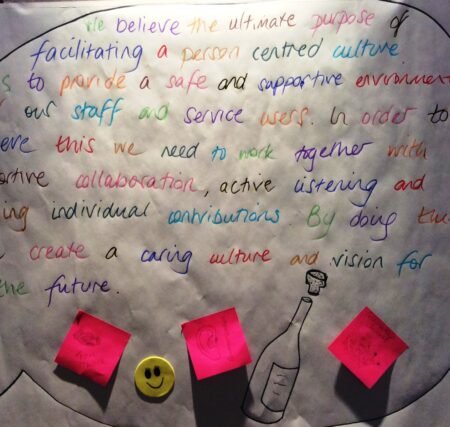 We believe the ultimate purpose of
facilitating a person centred culture
to provide a safe and supportive environment
our staff and service users. In order to
this we need to work together with
collaboration, active listening and
individual contributions. By doing
create a caring culture and vision for
the future.